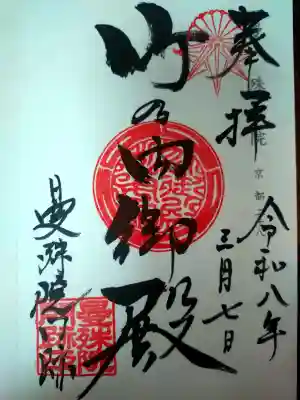 奉拝
京都
令和八年
三月七日
竹の内御殿
曼殊院门跡
曼殊院
門跡